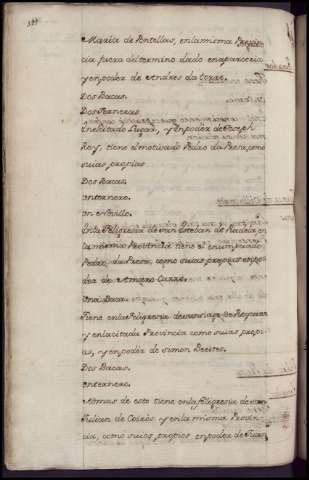 Maria de Pontellas, en la misma Provin
cia fuera del termino dado en aparceria
y en poder de Andres da torre.
Dos Bacas.
Dos Terneras
En el citado Lugar, y en poder de Josep
Rey, tiene el motivado Pedro da Presa, como
suias propias
Dos Bacas.
un ternero.
un Novillo.
En la Feligresia de San Esteban de
la misma Provincia tiene el enunciado
Pedro da Presa, como suias propias en po
der de Amaro Carre.
Una Baca.
Tiene en la Feligresia de
y en la citada Provincia como suias propi
as, y en poder de Simon Besites.
Dos Bacas.
un ternero.
Ademas de esto tiene en la Feligresia de san
Julian de y en la misma Provin
cia, como suios propios en poder de Juan